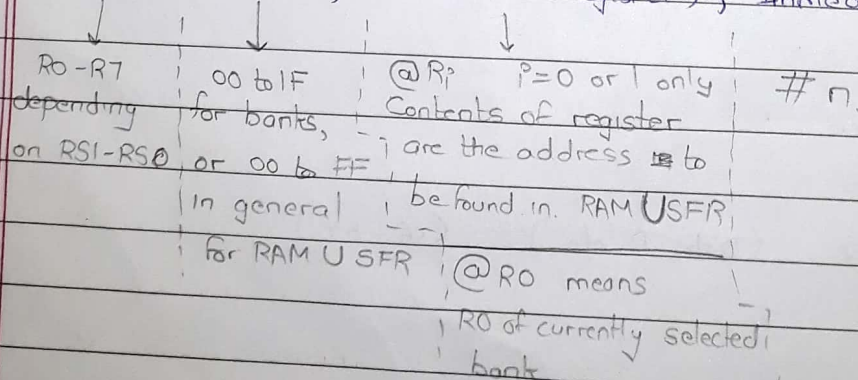 RO-R7
depending
on RS1-RS0
00 to 1F
for banks,
or 00 to FF
in general
for RAM U SFR
@Ri i=0 or 1 only
Contents of register
are the address to
be found in. RAM U SFR
@RO means
RO of currently selected
bank
# n